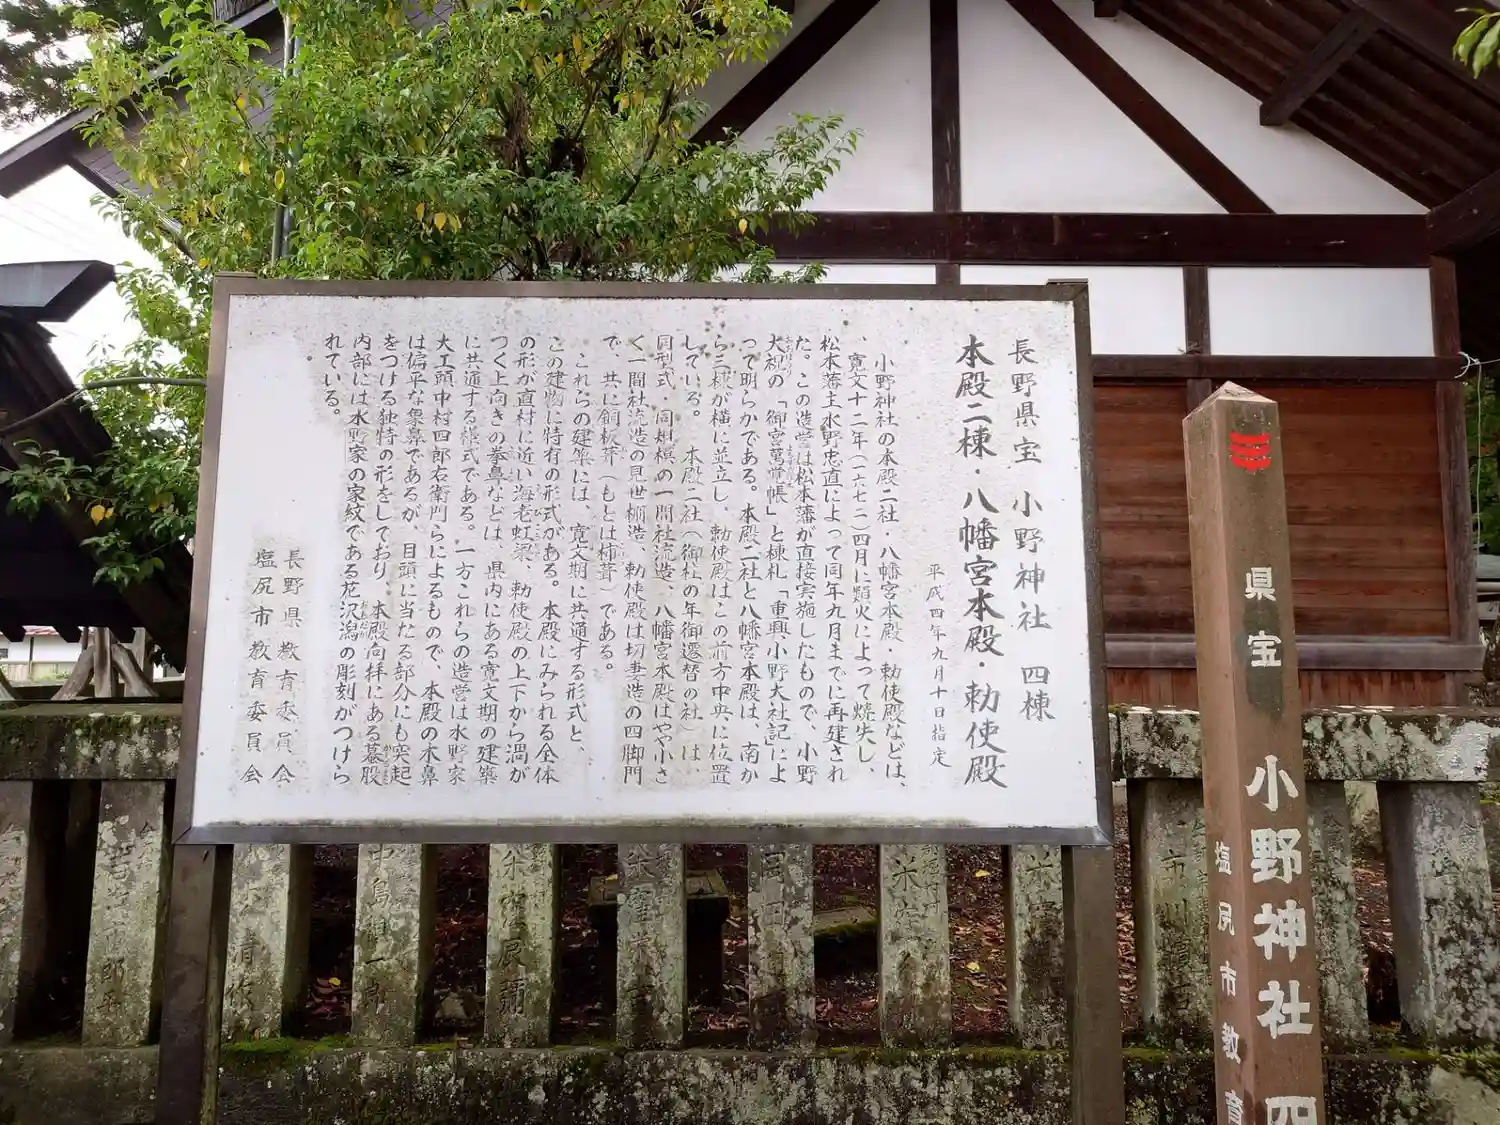 長野県宝 小野神社 四棟
本殿二棟・八幡宮本殿・勅使殿
平成四年九月十日指定
小野神社の本殿二社・八幡宮本殿・勅使殿などは、
、寛文十二年(一六七二)四月に類火によって焼失し、
松本藩主水野忠直によって同年九月までに再建され
た。この造営は松本藩が直接実施したもので、小野
大祝の「御宮萬覚帳」と棟札「重興小野大社記」によ
って明らかである。本殿二社と八幡宮本殿は、南か
ら三棟が横に並立し、勅使殿はこの前方中央に位置
している。 本殿二社(御柱の年御遷替の社)は、
同型式・同規模の一間社流造、八幡宮本殿はやや小さ
く一間社流造の見世棚造、勅使殿は切妻造の四脚門
で、共に銅板葺(もとは柿葺)である。
これらの建築には、寛文期に共通する形式と、
この建物に特有の形式がある。本殿にみられる全体
の形が直材に近い海老虹梁、勅使殿の上下から渦が
つく上向きの拳鼻などは、県内にある寛文期の建築
に共通する様式である。一方これらの造営は水野家
大工頭中村四郎右衛門らによるもので、本殿の木鼻
は偏平な象鼻であるが、目頭に当たる部分にも突起
をつける独特の形をしており、本殿向拝にある蟇股
内部には水野家の家紋である花沢潟の彫刻がつけら
れている。
長野県教育委員会
塩尻市教育委員会
県宝
小野神社四
塩尻市教育